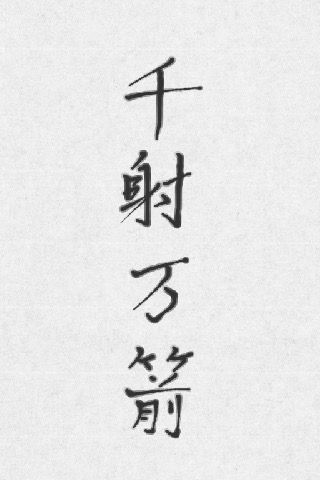 千射万箭